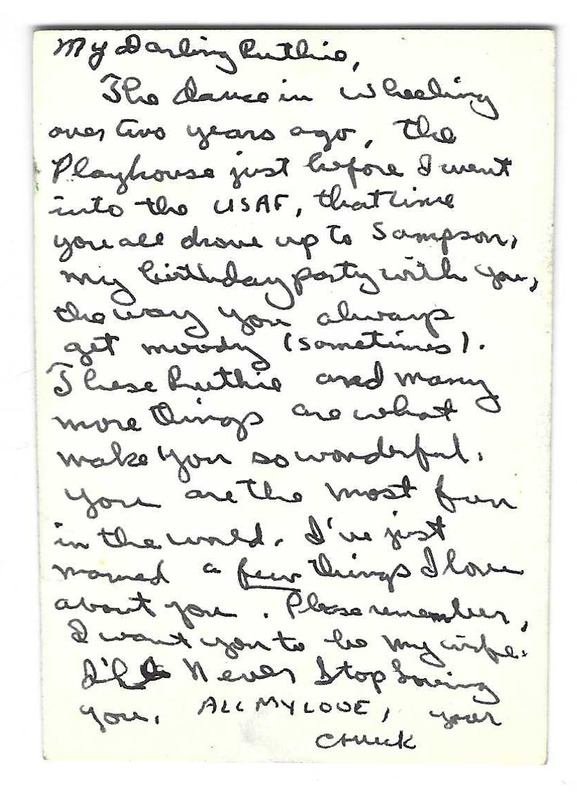 My Darling Ruthie,
The dance in Wheeling
over two years ago, the
Playhouse just before I went
into the USAF, that time
you all drove up to Sampson,
my birthday party with you,
the way you always
get moody (sometimes).
These Ruthie and many
more things are what
make you so wonderful.
You are the most fun
in the world. I've just
named a few things I love
about you. Please remember,
I want you to be my wife.
I'll Never Stop Loving
you. ALL MY LOVE, your
Chuck